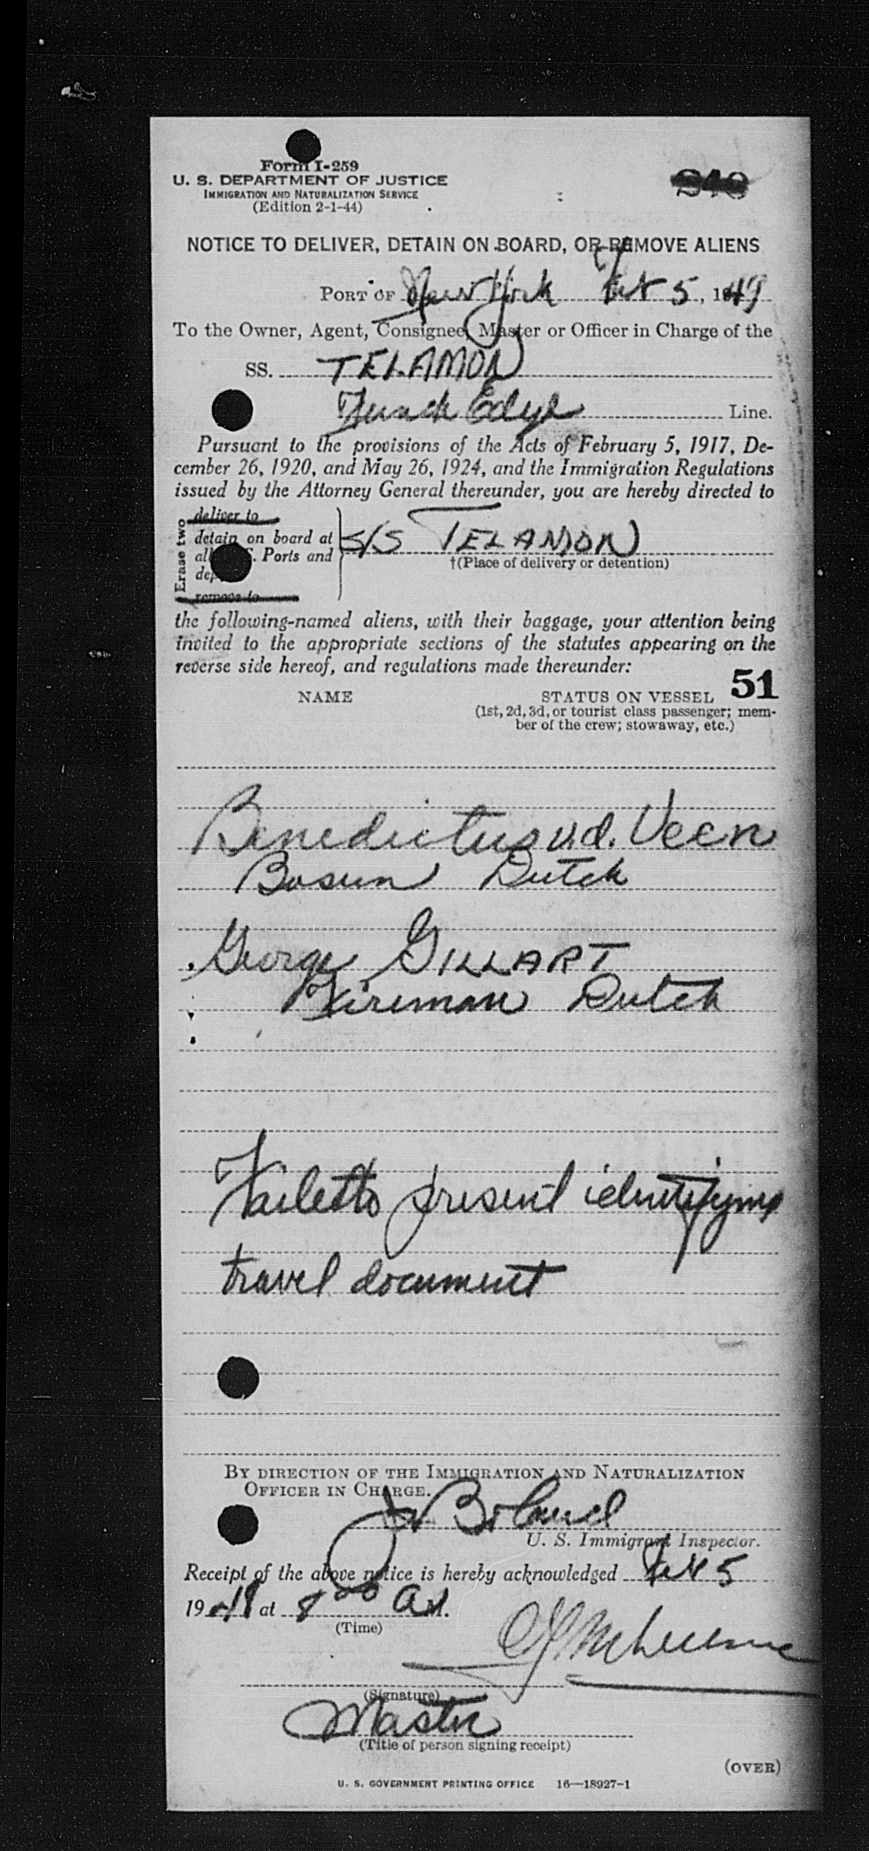 Form I-259
U. S. DEPARTMENT OF JUSTICE
IMMIGRATION AND NATURALIZATION SERVICE
(Edition 2-1-44)
NOTICE TO DELIVER, DETAIN ON BOARD, OR REMOVE ALIENS
PORT OF New York Feb 5, 1949
To the Owner, Agent, Consignee, Master or Officer in Charge of the
SS. TELAMON
Funch Edye Line.
Pursuant to the provisions of the Acts of February 5, 1917, De-
cember 26, 1920, and May 26, 1924, and the Immigration Regulations
issued by the Attorney General thereunder, you are hereby directed to
Erase two
deliver to
detain on board at S/S TELAMON
all Ports and †(Place of delivery or detention)
remove to
the following-named aliens, with their baggage, your attention being
invited to the appropriate sections of the statutes appearing on the
reverse side hereof, and regulations made thereunder:
51
NAME STATUS ON VESSEL
(1st, 2d, 3d, or tourist class passenger; mem-
ber of the crew; stowaway, etc.)
Benedictus v.d. Veen
Bosun Dutch
George GILLART
Fireman Dutch
Failed to present identifying
travel document
BY DIRECTION OF THE IMMIGRATION AND NATURALIZATION
OFFICER IN CHARGE.
Boland
U. S. Immigrant Inspector.
Receipt of the above notice is hereby acknowledged Feb 5
1949 at 8 00 AM.
(Time)
(Signature)
Master
(Title of person signing receipt)
(OVER)
U. S. GOVERNMENT PRINTING OFFICE 16—18927-1